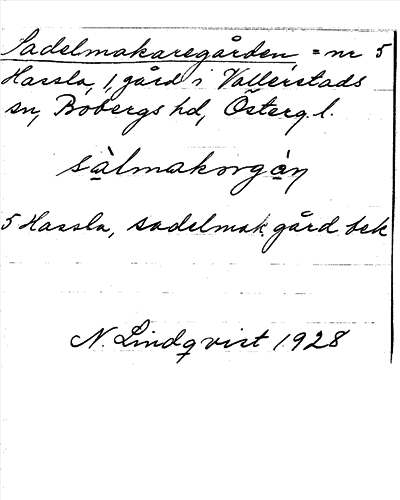 Sadelmakaregården, = nr 5
Hassla, 1 gård i Vallerstads
sn, Bobergs hd, Österg. l.
sàlmakorgán
5 Hassla, sadelmak. gård bek
N. Lindqvist 1928